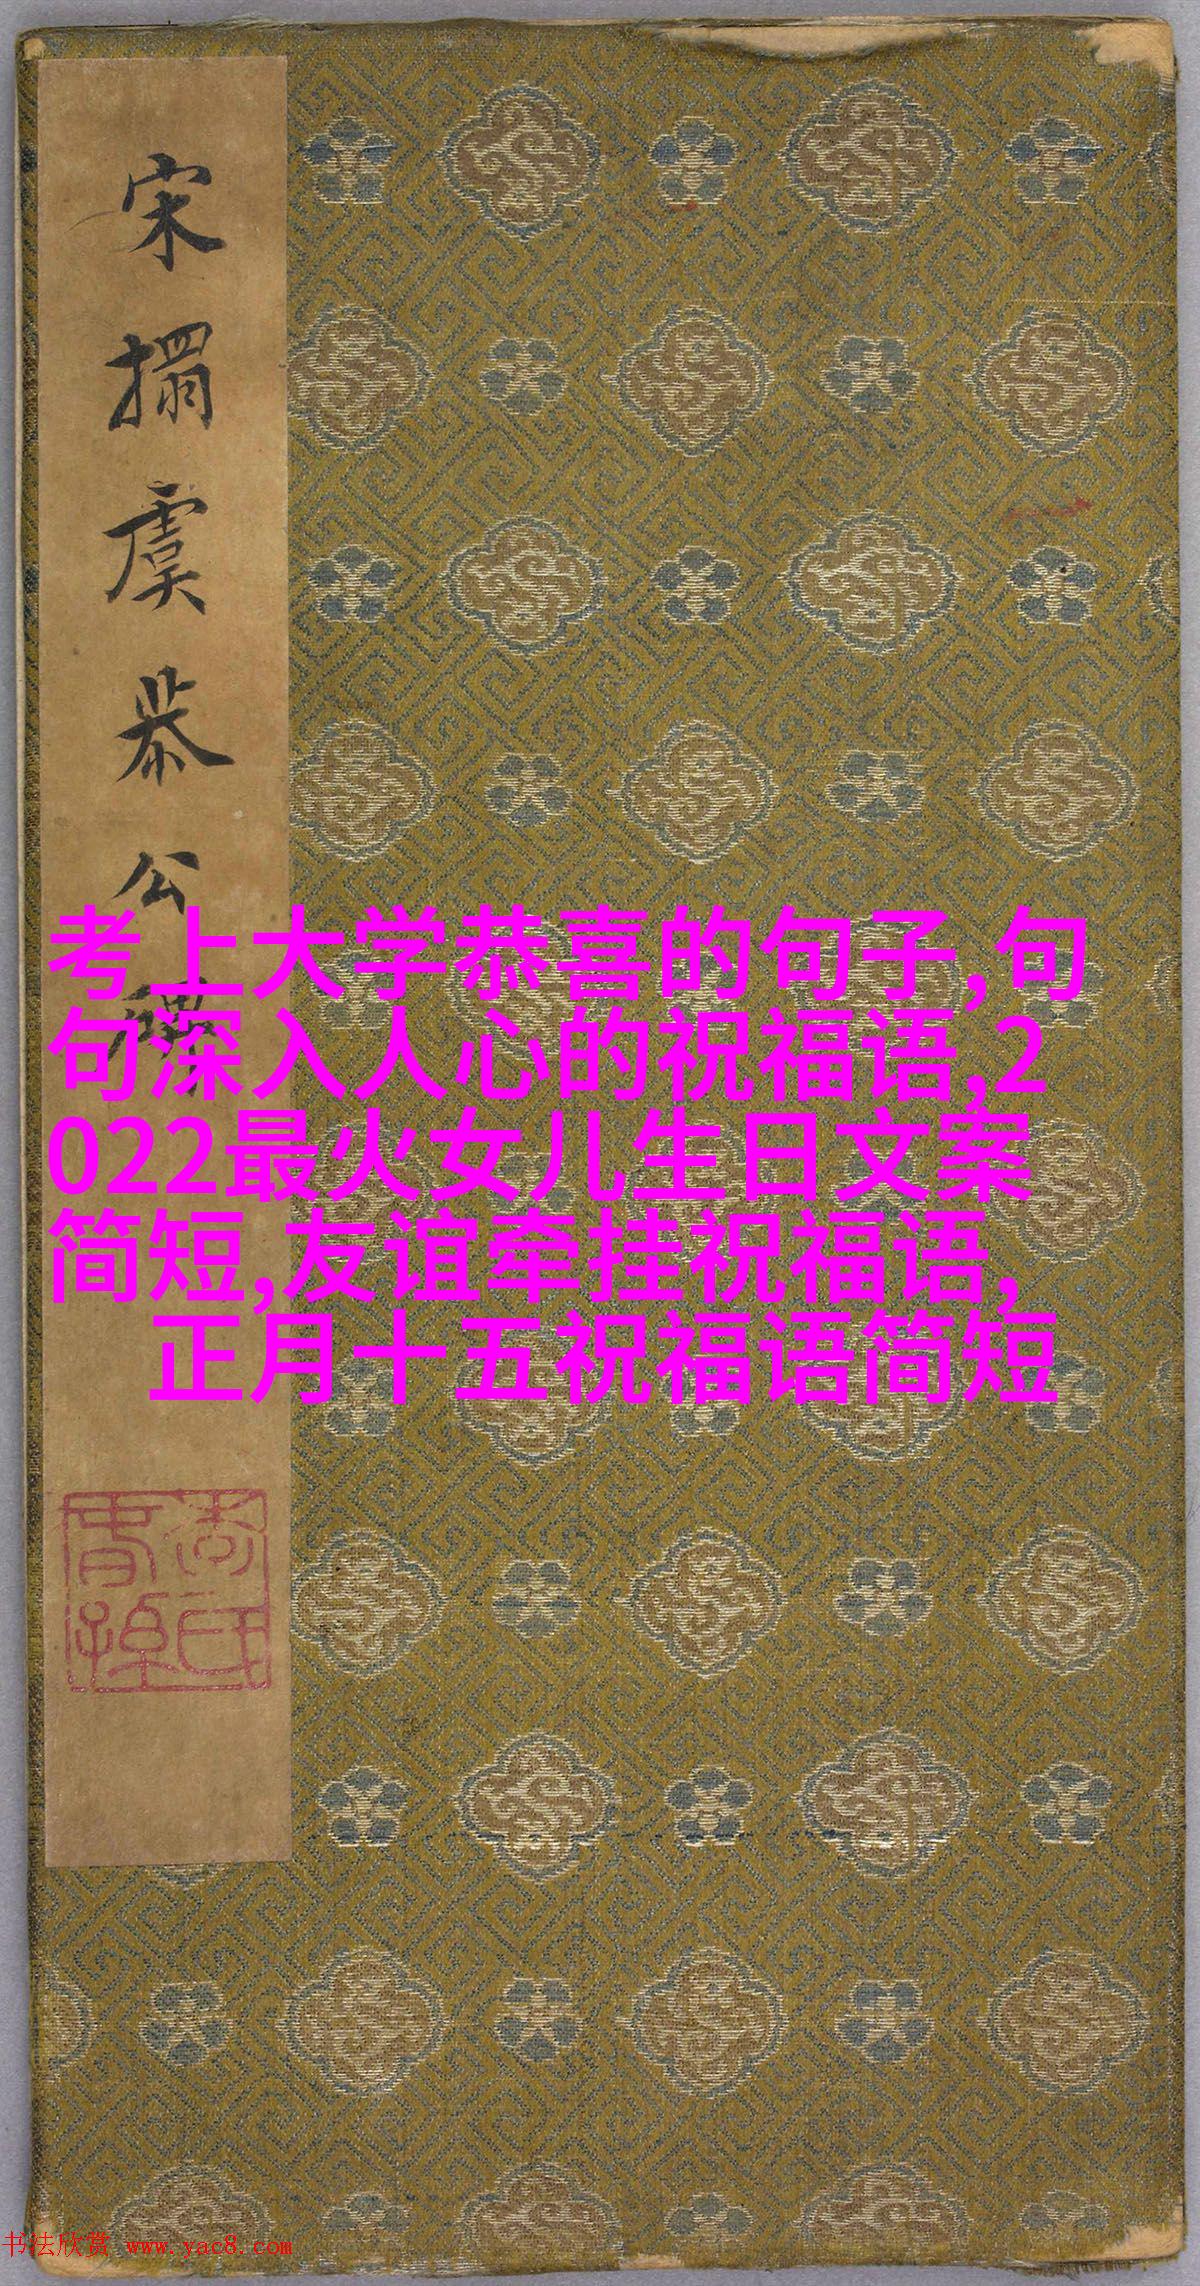 宋搨虞恭公碑
考上大学恭喜的句子,句
句深入人心的祝福语,2
022最火女儿生日文案
简短,友谊牵挂祝福语,
正月十五祝福语简短
书法欣赏 www.yac8.com